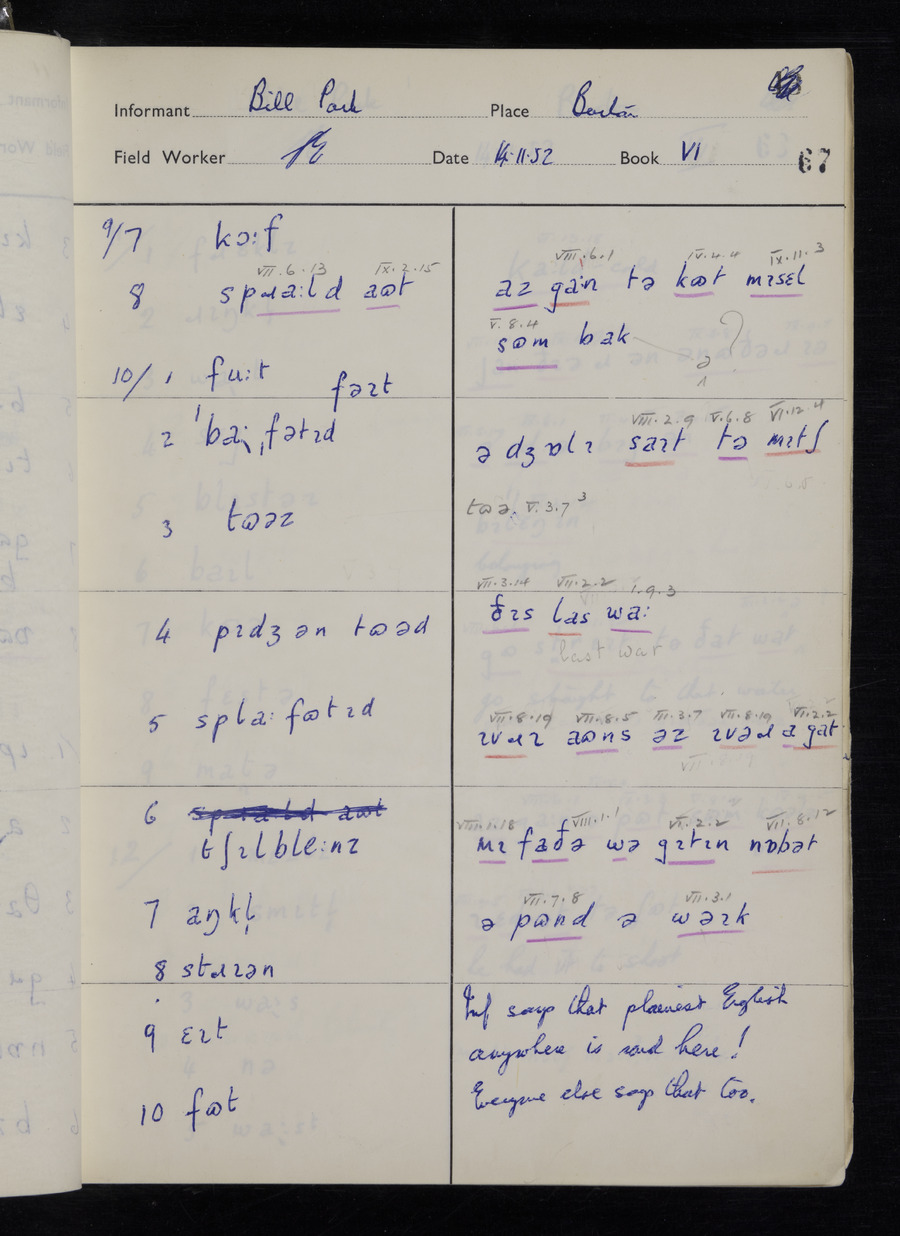 Informant Bill Park Place
Field Worker Date 14.11.52 Book VI 67
9/7 kɔːf
VII.6.13 IX.2.15
8 spɹaːld aɷt
10/1 fuːt fəɪt
2 ˈbaːˌfətɪd
3 tɷəz
4 pɪdʒən tɷəd
5 splaːfɷtɪd
6 spɹaːld aɷt
tʃɪlbleːnz
7 aŋkl̩
8 stɹɪən
9 ɛɪt
10 fɷt
VIII.6.1 IV.4.4 IX.11.3
aɪ gaˑn tə kɷt mɪsɛl
V.8.4
sɷm bak ?
ə
VIII.2.9 V.6.8 VI.12.4
ə dʒɒlɪ saɪt tə mɪtʃ
tɷə. V.3.7 3
VII.3.14 VII.2.2 1.9.3
ðɪs las waː
last war
VII.8.19 VII.8.5 III.3.7 VII.8.19 VI.2.2
ɪvɹɪ aɷns əz ɪvəɹ a gat
VIII.1.18 VIII.1.1 VI.2.2 VII.8.12
mɪ faðə wə gɪtɪn nɒbət
VII.7.8 VII.3.1
ə pɷnd ə wəɪk
Inf. says that plainest English
anywhere is said here!
Everyone else says that too.